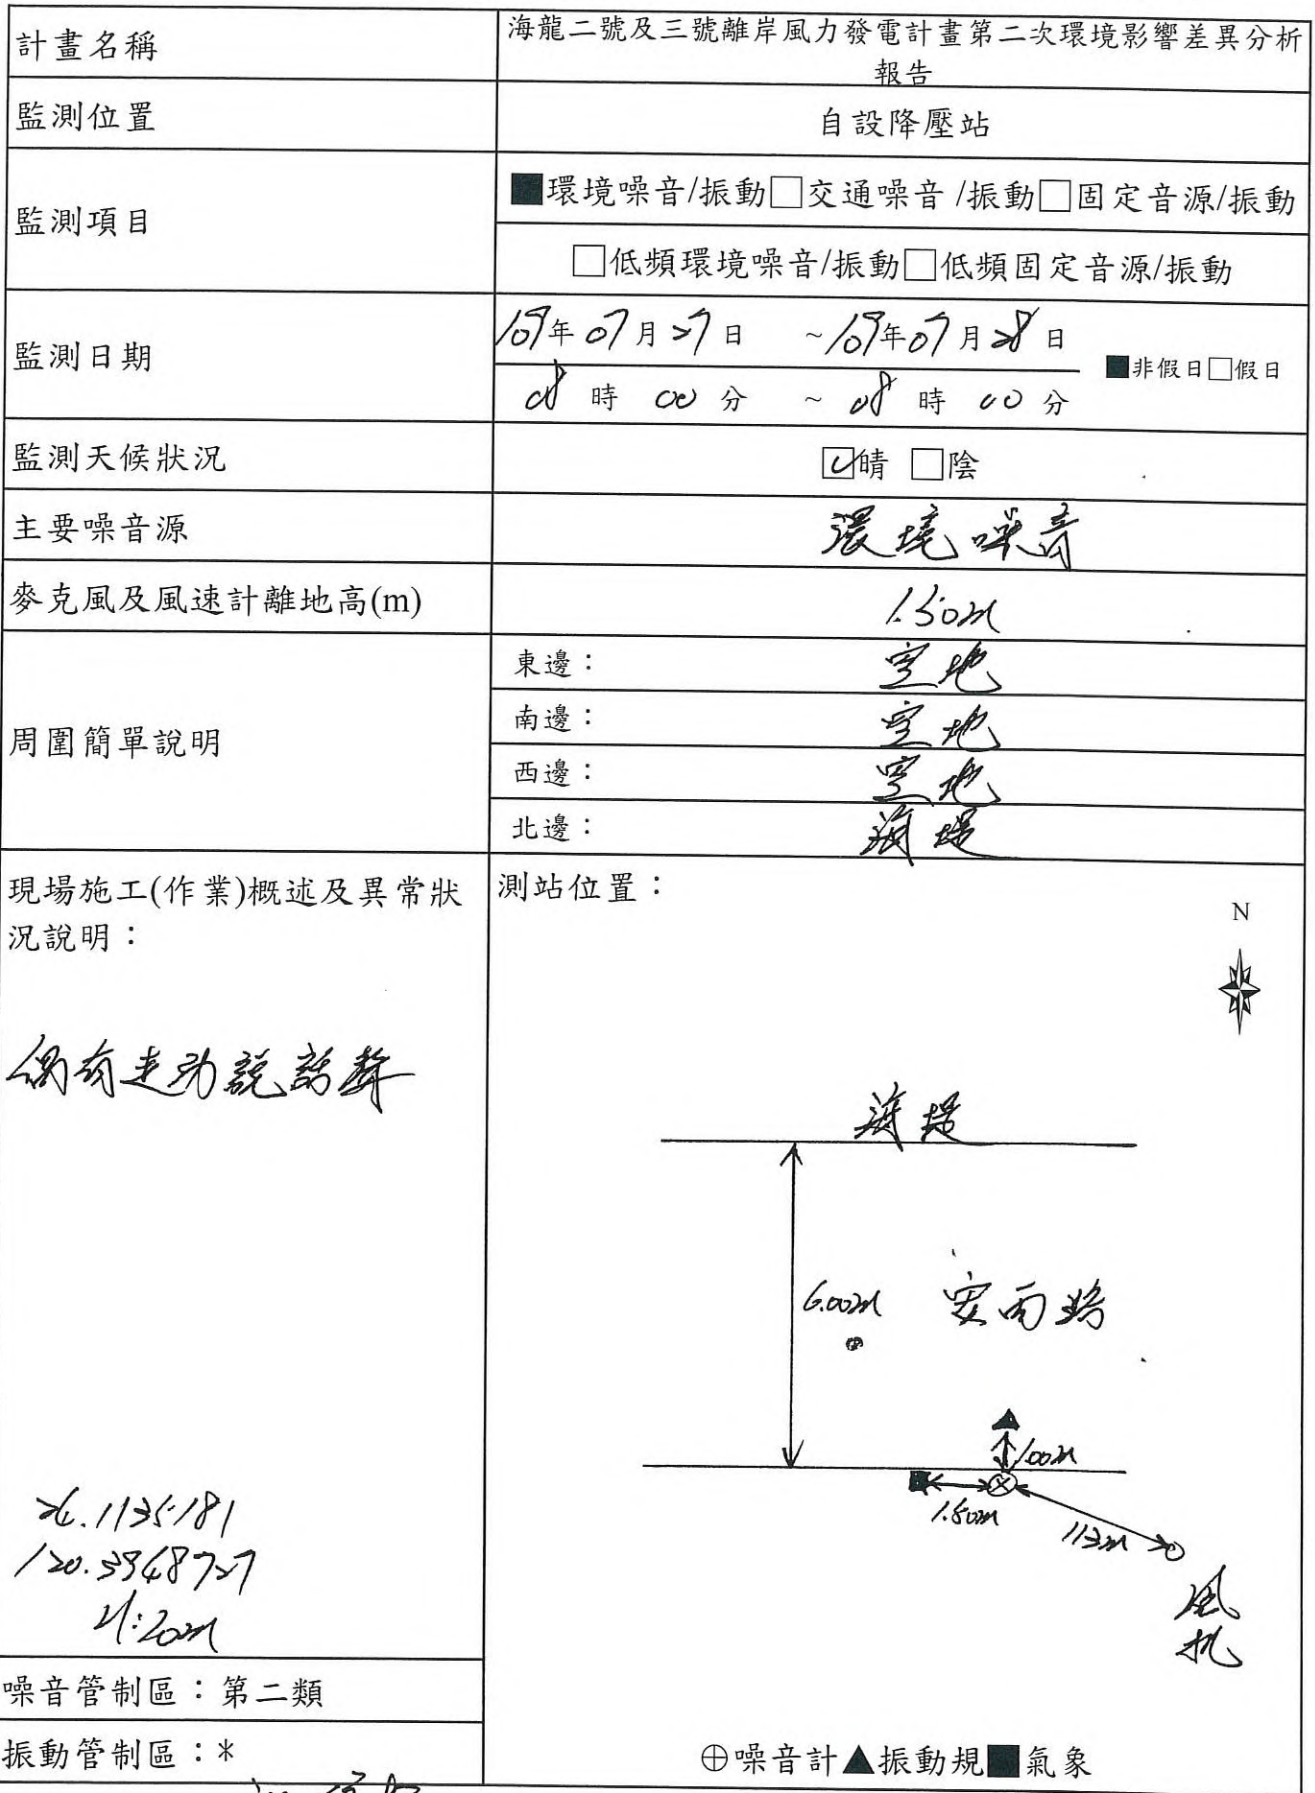 計畫名稱
海龍二號及三號離岸風力發電計畫第二次環境影響差異分析
報告
監測位置
自設降壓站
監測項目
■環境噪音/振動□交通噪音/振動□固定音源/振動
□低頻環境噪音/振動□低頻固定音源/振動
監測日期
109年07月27日 ~109年07月28日
08時00分 ~ 08時00分
■非假日□假日
監測天候狀況
☑晴 □陰
主要噪音源
環境噪音
麥克風及風速計離地高(m)
1.50m
周圍簡單說明
東邊：空地
南邊：空地
西邊：空地
北邊：海堤
現場施工(作業)概述及異常狀
況說明：
偶有走動說話聲
120.3948727
測站位置：
N
海堤
6.00m
1.00m
1.50m
113m
風
机
噪音管制區：第二類
振動管制區：*
⊕噪音計▲振動規■氣象